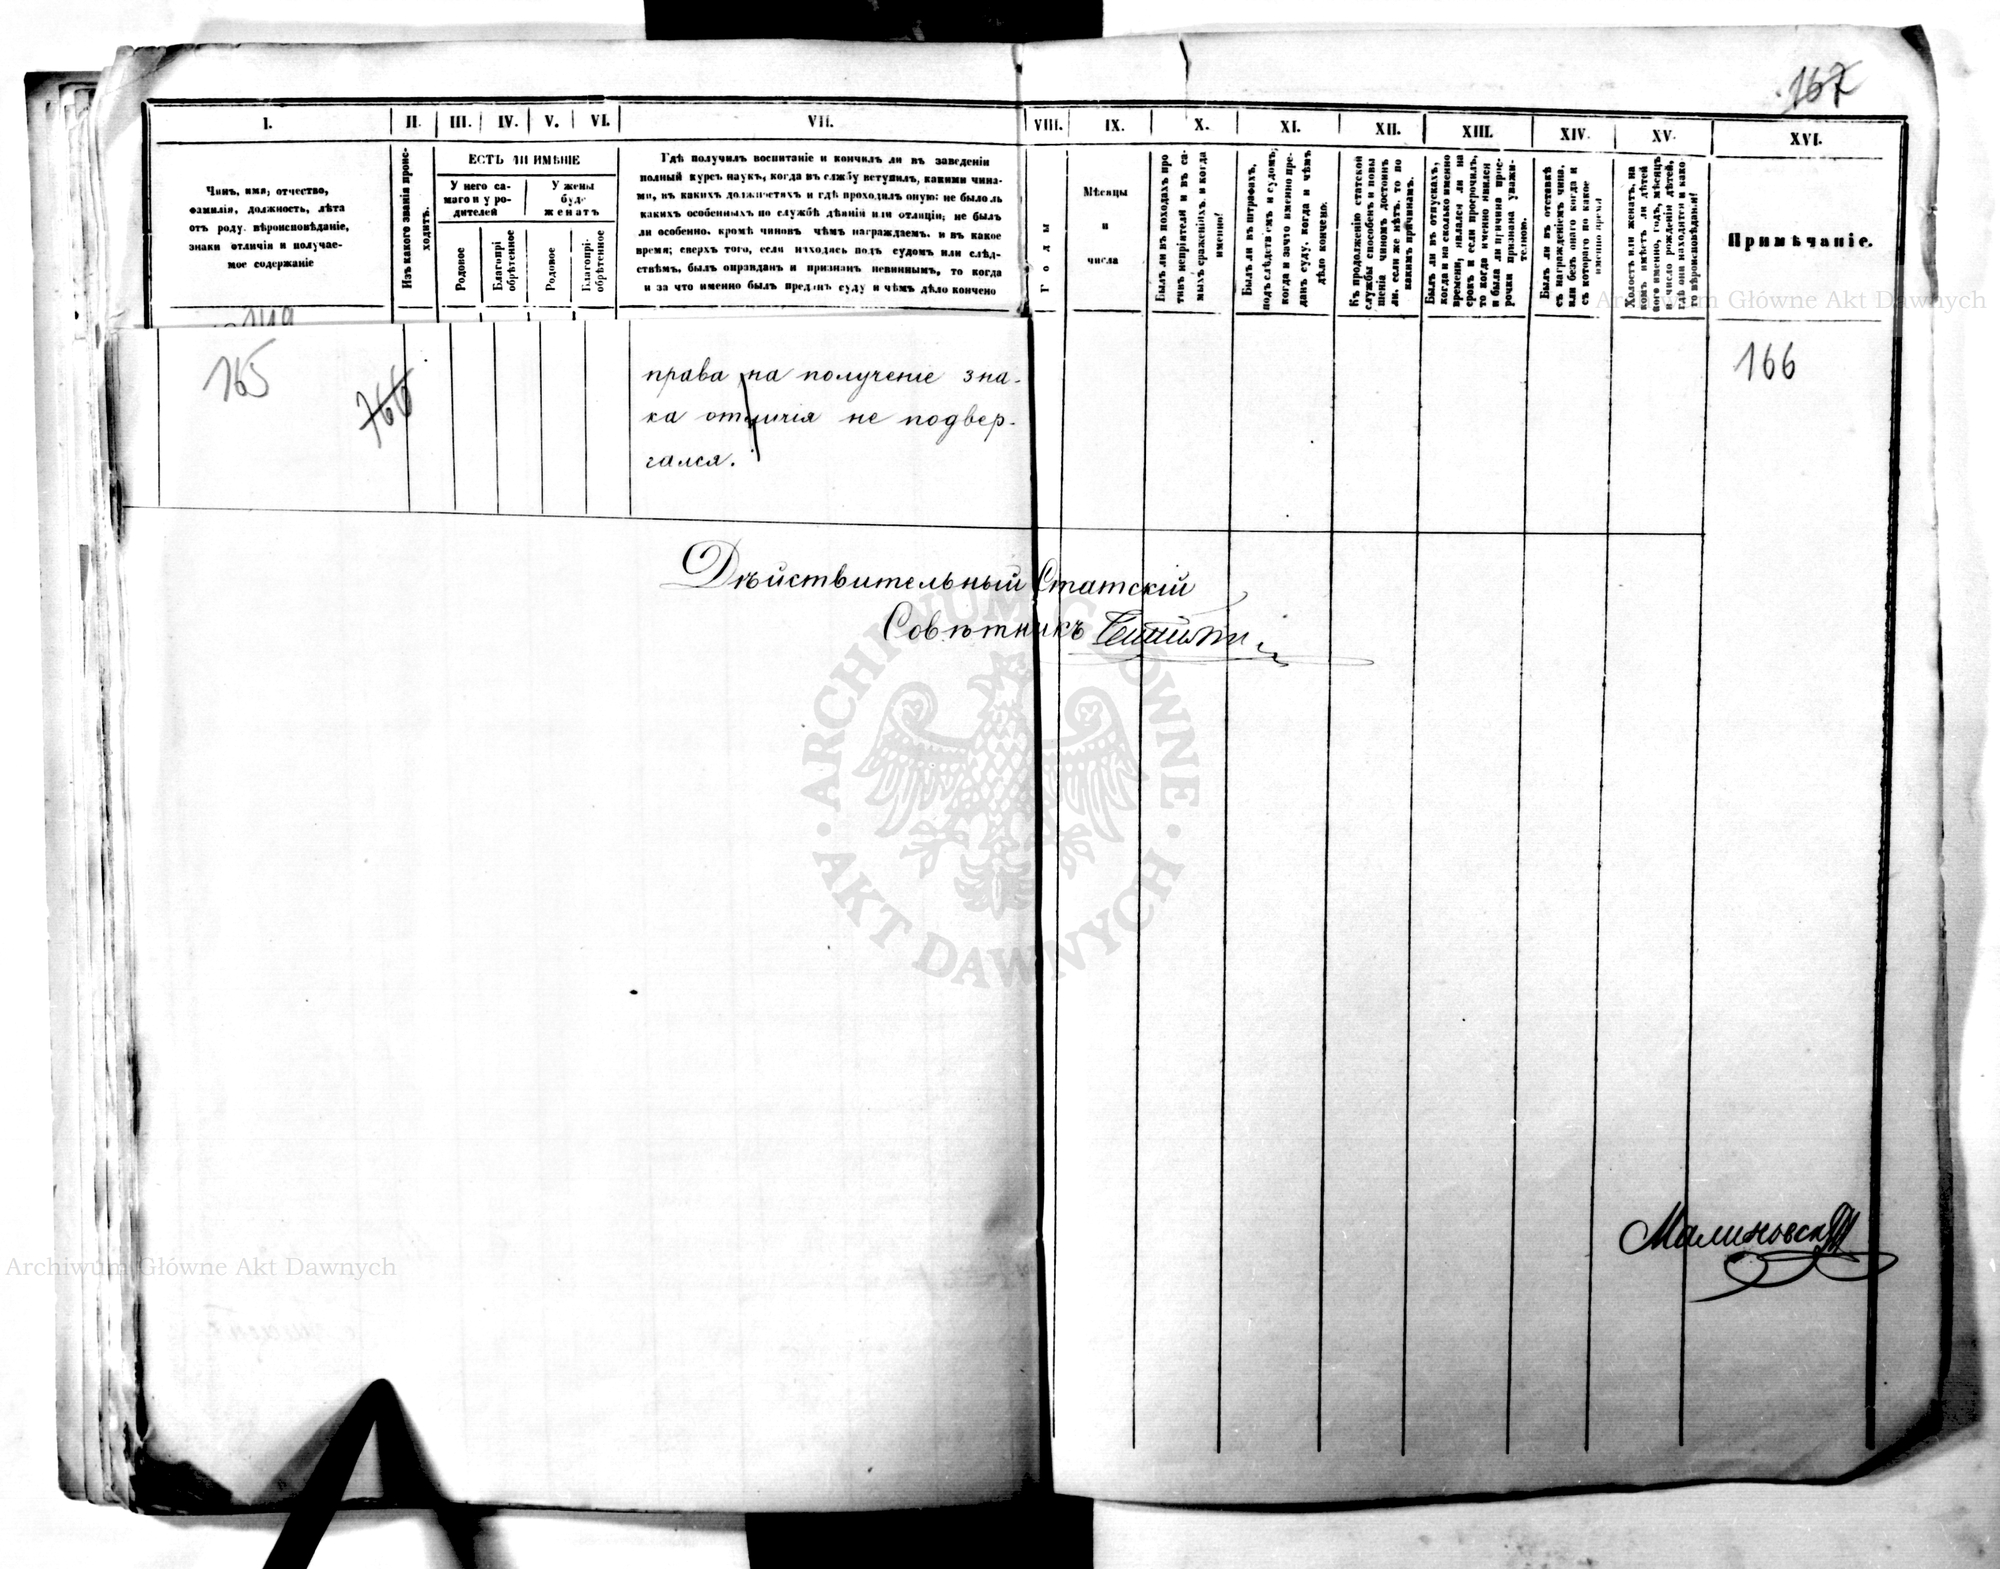 167
I.
II.
III.
IV.
V.
VI.
VII.
VIII.
IX.
X.
XI.
XII.
XIII.
XIV.
XV.
XVI.
Чинъ, имя, отчество,
фамилія, должность, лѣта
отъ роду, вѣроисповѣданіе,
знаки отличія и получае-
мое содержаніе
Изъ какого званія проис-
ходитъ.
ЕСТЬ ЛИ ИМѢНІЕ
У него са-
маго и у ро-
дителей
У жены
буде
женатъ
Родовое
Благопрі-
обрѣтенное
Родовое
Благопрі-
обрѣтенное
Гдѣ получилъ воспитаніе и кончилъ ли въ заведеніи
полный курсъ наукъ, когда въ службу вступилъ, какими чина-
ми, въ какихъ должностяхъ и гдѣ проходилъ оную: не было ль
какихъ особенныхъ по службѣ дѣяній или отлицій; не былъ
ли особенно, кромѣ чиновъ чѣмъ награждаемъ, и въ какое
время; сверхъ того, если находясь подъ судомъ или слѣд-
ствіемъ, былъ оправданъ и признанъ невиннымъ, то когда
и за что именно былъ преданъ суду и чѣмъ дѣло кончено
Годы
Мѣсяцы
и
числа
Былъ ли въ походахъ про
тивъ непріятеля и въ са-
мыхъ сраженіяхъ и когда
именно?
Былъ ли въ штрафахъ,
подъ слѣдствіемъ и судомъ;
когда и за что именно пре-
данъ суду, когда и чѣмъ
дѣло кончено.
Къ продолженію статской
службы способенъ и повы
шенія чиномъ достоинъ
ли, если же нѣтъ, то по
какимъ причинамъ.
Былъ ли въ отпускахъ,
когда и на сколько именно
времени; являлся ли на
срокъ и если просрочилъ,
то когда именно явился
и была ли причина прос-
рочки признана уважи-
тельною.
Былъ ли въ отставкѣ
съ награжденіемъ чина,
или безъ онаго когда и
съ котораго по какое
именно время
Холостъ или женатъ, на
комъ имѣетъ ли дѣтей
кого именно, годъ, мѣсяцъ
и число рожденія дѣтей,
гдѣ они находятся и како-
го вѣроисповѣданія?
Примѣчаніе.
Archiwum Główne Akt Dawnych
165
166
166
права на полученіе зна-
ка отличія не подвер-
гался.
Дѣйствительный Статскій
Совѣтникъ
ARCHIWUM GŁÓWNE
AKT DAWNYCH
Малиновскій
Archiwum Główne Akt Dawnych